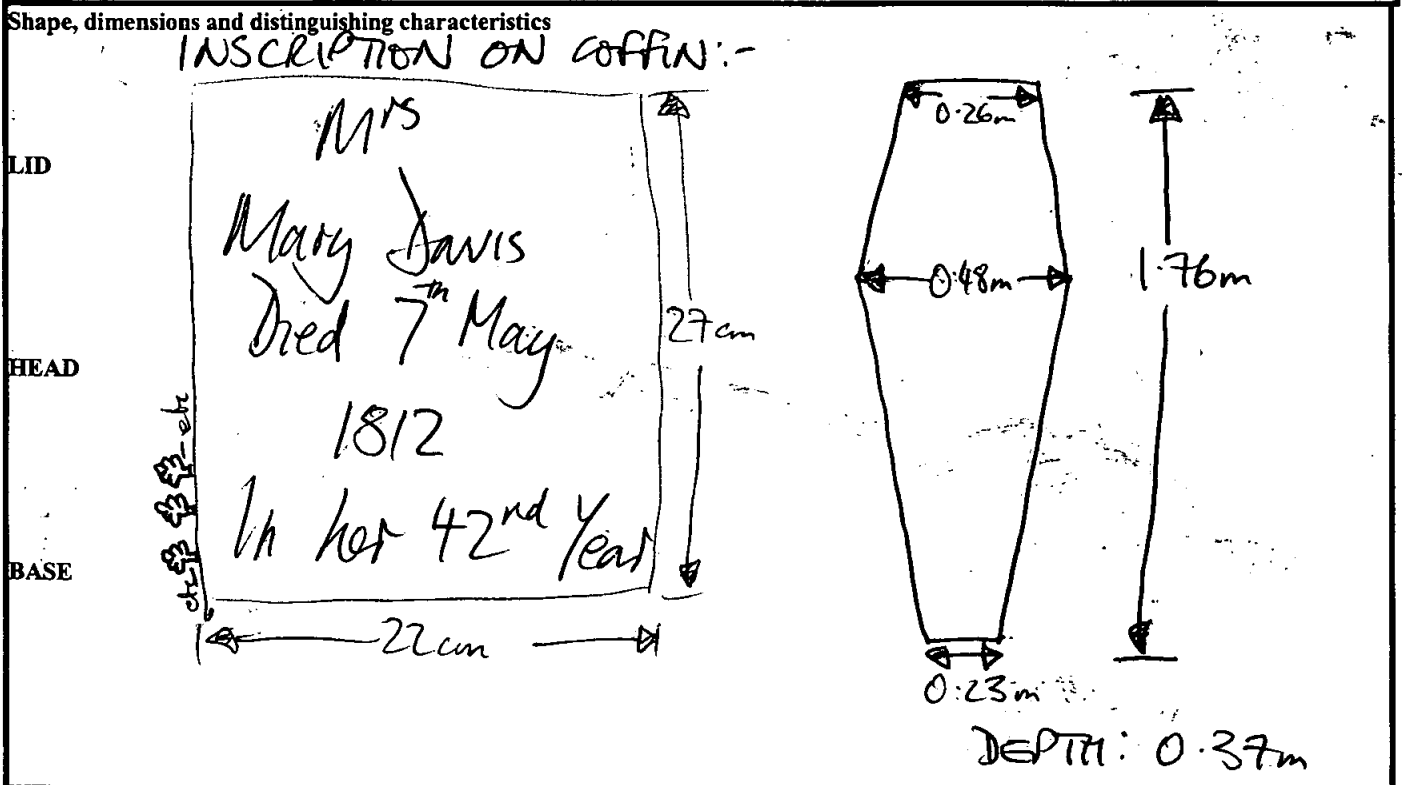 Shape, dimensions and distinguishing characteristics
INSCRIPTION ON COFFIN:-
LID
HEAD
BASE
Mrs
Mary Davis
Died 7th May
1812
In her 42nd Year
27cm
22cm
etc
etc
0.26m
0.48m
1.76m
0.23m
DEPTH: 0.37m